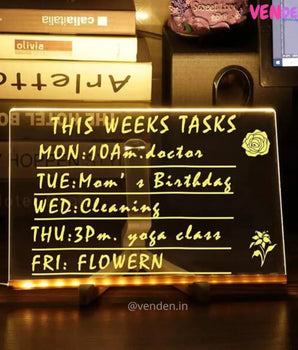 VENDE
callaitalica
olivia
Arletto
THIS WEEKS TASKS
MON:10Am.doctor
TUE:Mom's Birthday
WED:Cleaning
THU:3Pm. yoga class
FRI: FLOWERN
@venden.in